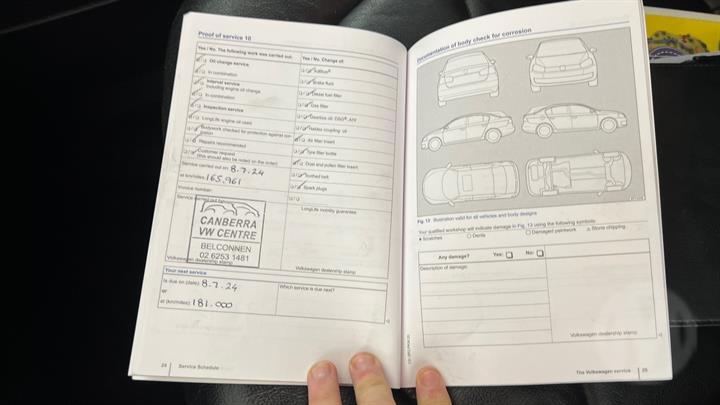 Proof of service 10
Yes / No. The following work was carried out:
Oil change service
In combination
Interval service
Including engine oil change
In combination
Inspection service
LongLife engine oil used
Bodywork checked for protection against cor-
rosion
Repairs recommended
Customer request
(this should also be noted on the order)
Service carried out on: 8.7.24
at km/miles: 165,961
Invoice number:
Service carried out by:
CANBERRA
VW CENTRE
BELCONNEN
02 6253 1481
Volkswagen dealership stamp
Yes / No. Change of:
AdBlue®
Brake fluid
Diesel fuel filter
Gas filter
Gearbox oil: DSG®, ATF
Haldex coupling oil
Air filter insert
Tyre filler bottle
Dust and pollen filter insert
Toothed belt
Spark plugs
LongLife mobility guarantee
Volkswagen dealership stamp
Your next service
Is due on (date): 8.7.24
or
at (km/miles): 181.000
Which service is due next?
24 Service Schedule
Documentation of body check for corrosion
Fig. 13 Illustration valid for all vehicles and body designs
Your qualified workshop will indicate damage in Fig. 13 using the following symbols:
Scratches Dents Damaged paintwork Stone chipping
Any damage? Yes: No:
Description of damage:
Volkswagen dealership stamp
The Volkswagen service 25